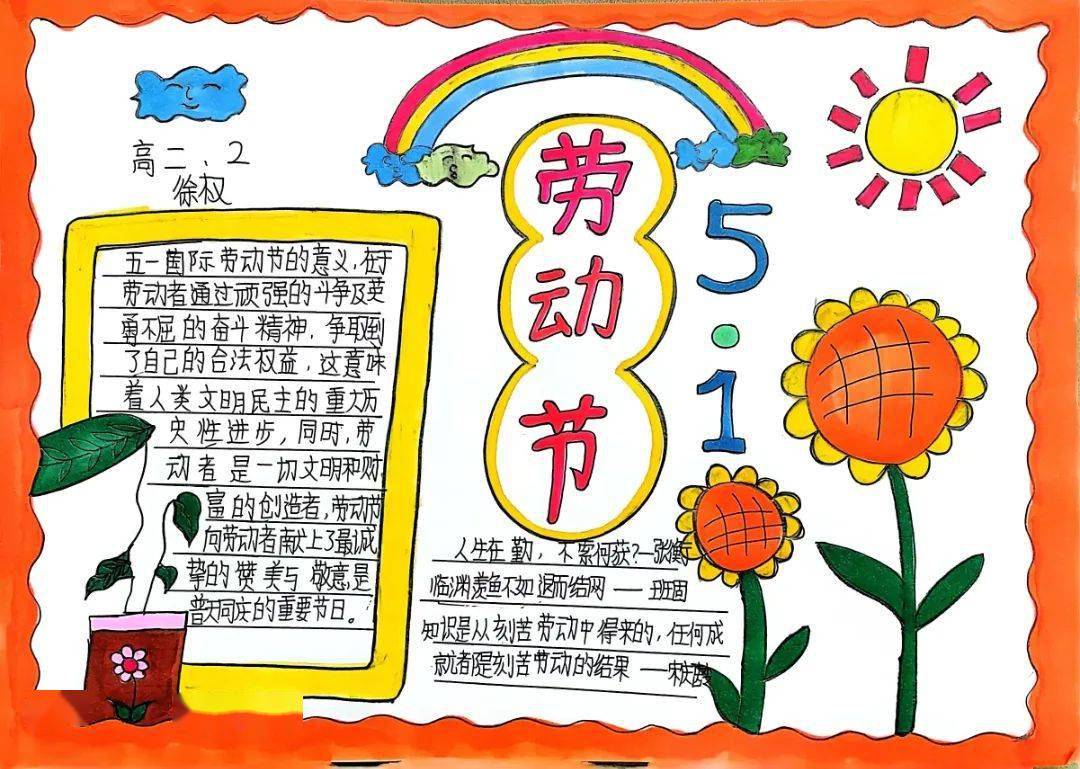 高二.2
徐权
劳动节
5·1
五一国际劳动节的意义,在于
劳动者通过顽强的斗争及英
勇不屈的奋斗精神,争取到
了自己的合法权益,这意味
着人类文明民主的重大历
史性进步,同时,劳
动者是一切文明和财
富的创造者,劳动节
向劳动者献上了最诚
挚的赞美与敬意是
普天同庆的重要节日。
人生在勤,不索何获?—张衡
临渊羡鱼不如退而结网——班固
知识是从刻苦劳动中得来的,任何成
就都是刻苦劳动的结果—宋庆龄